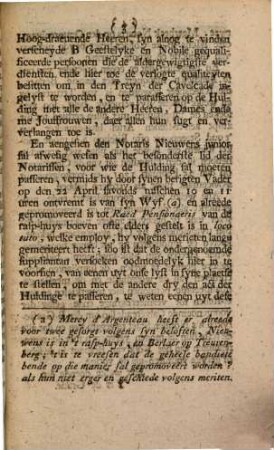 ( 4 )
Hoog-draevende Heeren, syn alnog te vinden
verscheyde B Geestelyke en Nobile gequali-
ficeerde persoonen die de aldergewigtigste ver-
diensten, ende hier toe de versogte qualiteyten
besitten om in den Treyn der Cavelcade in-
gelyft te worden, en te parasseren op de Hul-
ding met alle de andere Heeren, Dames, ende
me Jouffrouwen, daer allen hun sugt en ver-
verlangen toe is.
En aengesien den Notaris Nieuwens junior
sal afwesig wesen als het besonderste lid der
Notarissen, voor wie de Hulding sal moeten
passeren, vermids hy door synen berigten Vader
op den 22 April savonds tusschen 10 en 11
uren ontvremt is van syn Wyf (a) en alreede
gepromoveerd is tot Raed Pensionaris van de
rasp-huys boeven ofte elders gestelt is in loco
tuto, welke employ, hy volgens meriten lange
gemeriteert heeft; soo ist dat de ondergenoemde
suppliantan versoeken oodmoedelyk hier in te
voorsien, van eenen uyt onse lyst in syne plaetse
te stellen, om met de andere dry den act der
Huldinge te passeren, te weten eenen uyt dese
(a) Mercy d'Argenteau heeft er alreede
voor twee gesorgt volgens syn beloften, Nieu-
wens is in 't rasp-huys, en Berlaer op Treuren-
berg; 't is te vreesen dat de geheele bandiete
bende op die manier sal gepromoveert worden,
als hun niet erger en geschiede volgens meriten.